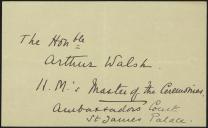 The Honble
Arthur Walsh.
H.M's Master of the Ceremonies.
Ambassadors Court
St James Palace.